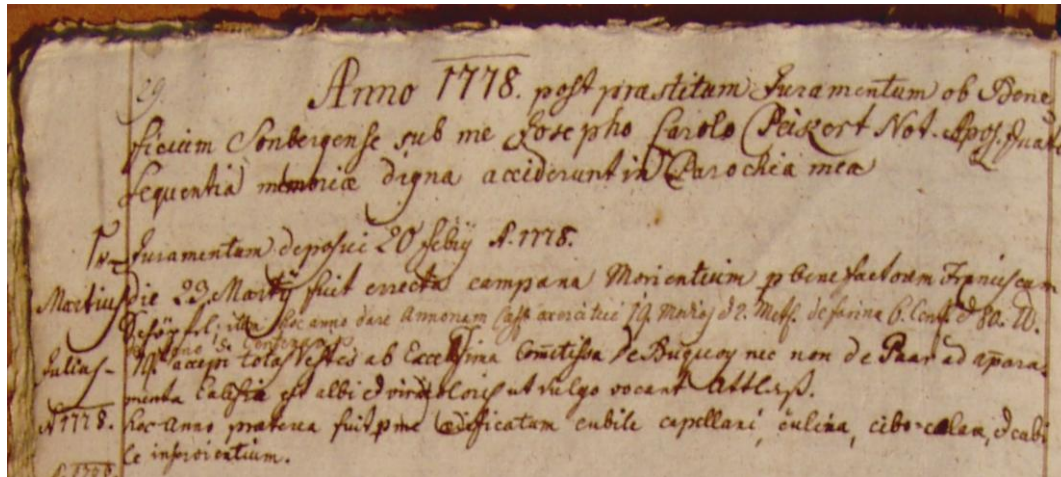 29.
Anno 1778. post præstitum Juramentum ob Bene
ficium Sonbergense sub me Josepho Carolo Peikert Not. Apos. quæ
sequentia memoriæ digna acciderunt in Parochia mea
Juramentum deposui 20 febrij A. 1778.
Martius die 23 Martij fuit errecta campana Morientium p benefactorem Franciscum
hoc anno dare Annonam Cass. exercitui 19 &2. Metz. de farina 6. Cent. & 80. lb.
Julius- accepi totas vestes ab Excellsima Comitissa de Buquoy nec non de Paar ad apara-
menta Ecclesiæ est albi et viridi coloris ut vulgo vocant Attlass.
A 1778. hoc anno præterea fuit p me ædificatum cubile capellani, culina, cibo-celara, & cubi
le inservientium.